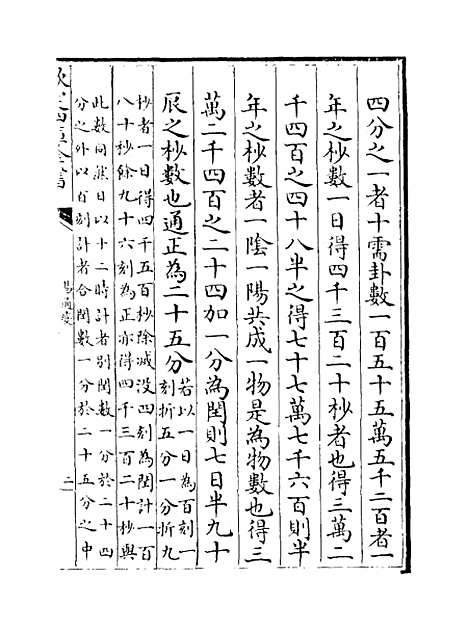 四分之一者十需卦數一百五十五萬五千二百者一
年之杪數一日得四千三百二十杪者也得三萬二
千四百之四十八半之得七十七萬七千六百則半
年之杪數者一陰一陽共成一物是為物數也得三
萬二千四百之二十四加一分為閏則七日半九十
辰之杪數也通正為二十五分若以一日為百刻一
刻折五分一分折九
杪者一日得四千五百杪除減没四刻為閏計一百
八十杪餘九十六刻為正亦得四千三百二十杪與
此數同然日以十二時計者别閏數一分於二十四
分之外以百刻計者合閏數一分於二十五分之中
欽定四庫全書
易通變
二